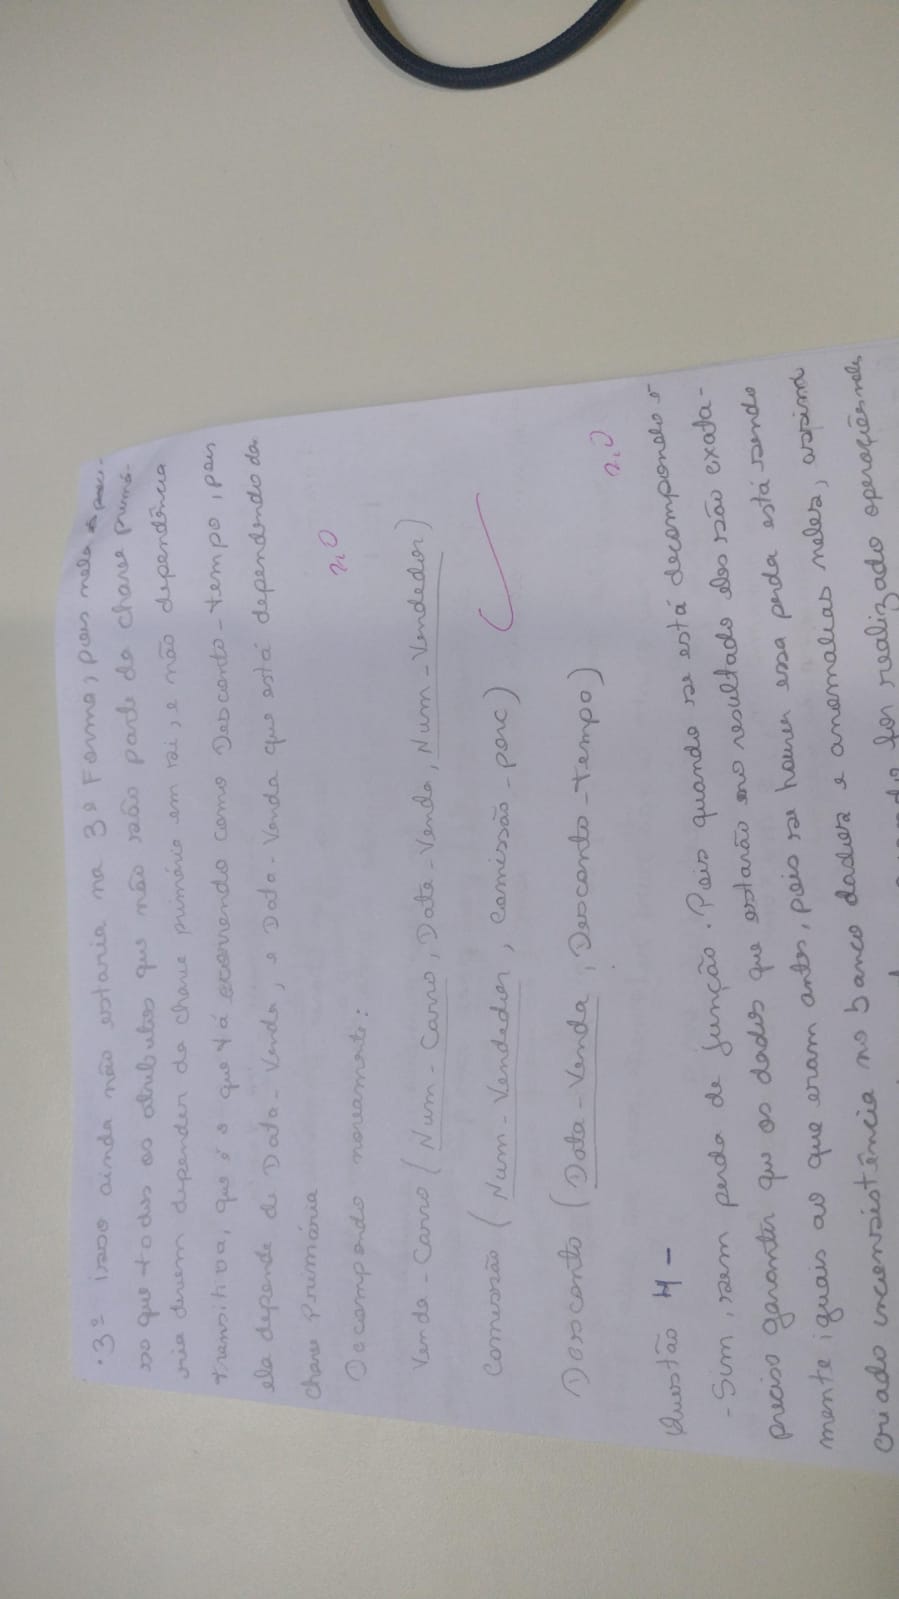 • 3º isso ainda não estaria na 3º Forma, pois nela é preci-
so que todos os atributos que não são parte da chave primá-
ria devem depender da chave primária em si, e não dependência
transitiva, que é o que tá ocorrendo como Desconto-tempo, pois
ela depende de Data-Venda, e Data-Venda que está dependendo da
chave Primária
Decompondo novamente:
2,0
Venda-Carro (Num-Carro, Data-Venda, Num-Vendedor)
Comissão (Num-Vendedor, Comissão-porc)
Desconto (Data-Venda, Desconto-tempo)
2,0
Questão 4 -
- Sim, sem perda de função. Pois quando se está decompondo é
preciso garantir que os dados que estarão no resultado eles são exata-
mente iguais ao que eram antes, pois se houver essa perda está sendo
criado inconsistência no banco dados e anomalias neles, assim
for realizado operações neles